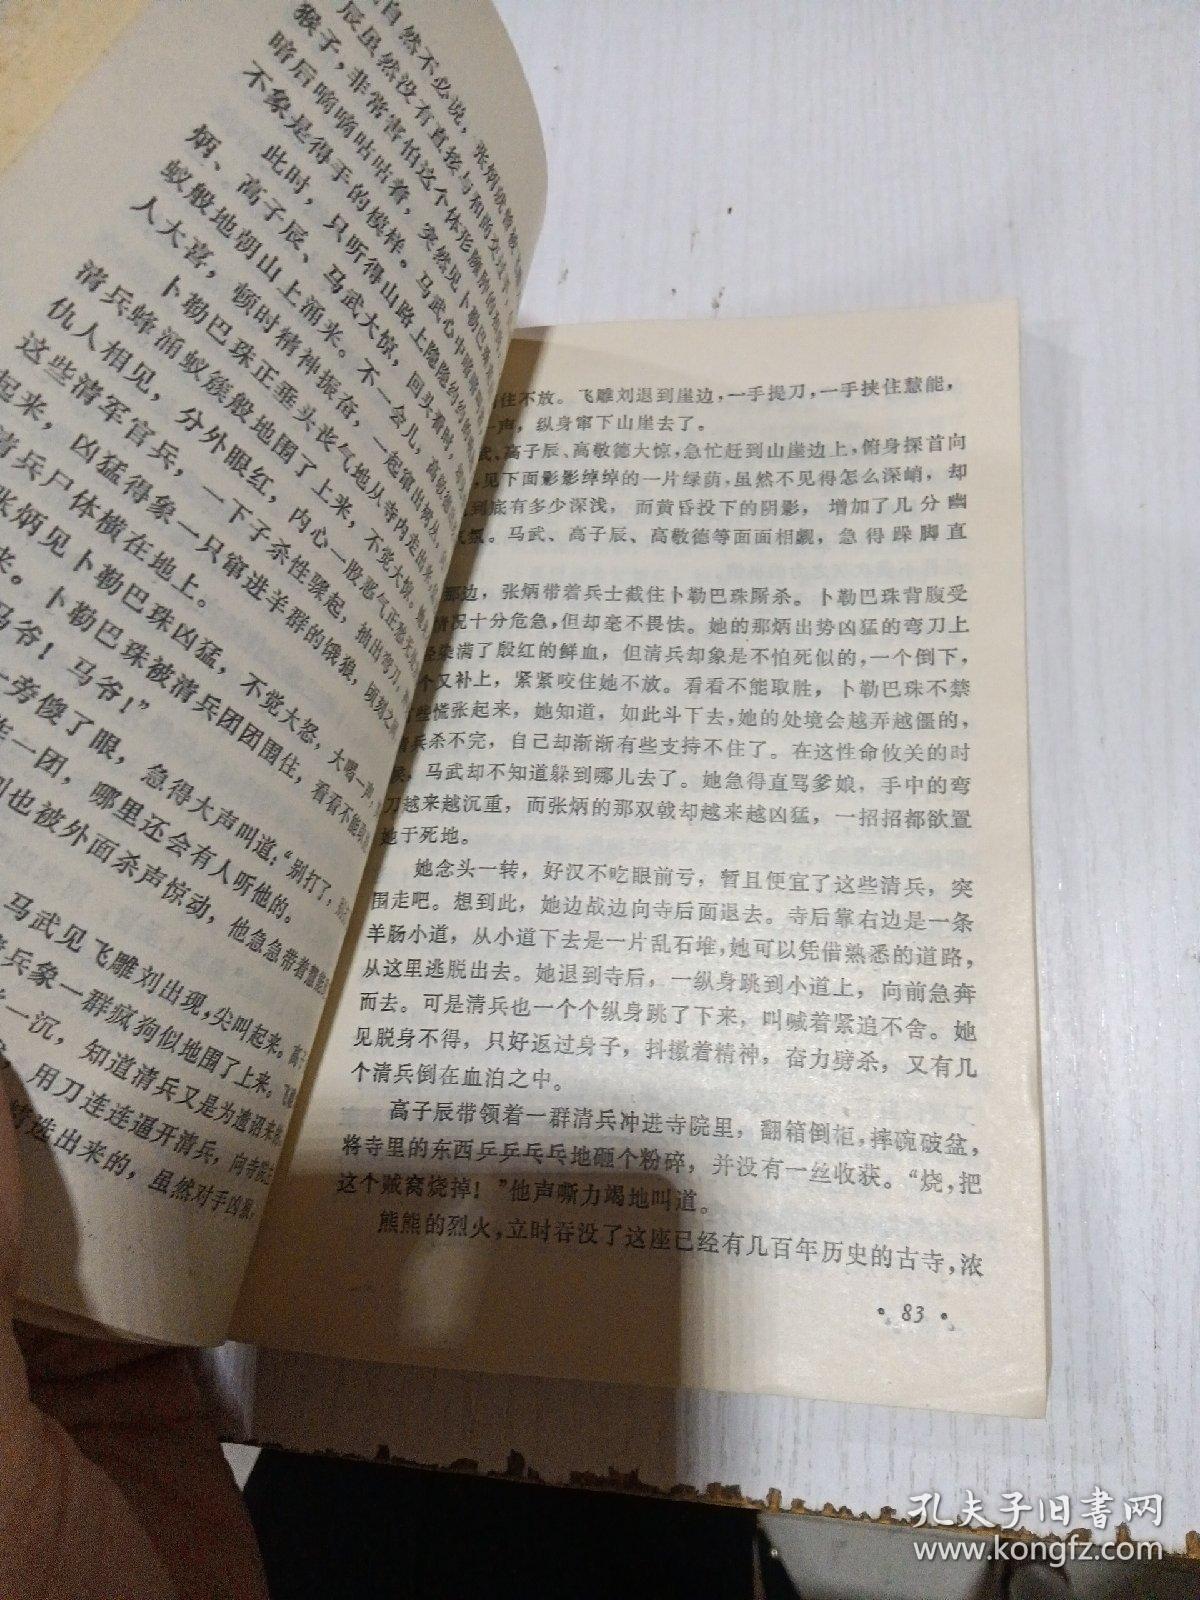 自然不必说，张炳
辰虽然没有直接与和尚交过手，
猴子，非常害怕这个体形臃肿的
暗后嘀嘀咕咕着，突然见卜勒巴珠
不象是得手的模样。马武心中
此时，只听得山路上隐隐约约的
炳、高子辰、马武大惊，回头看时，
蚁般地朝山上涌来。不一会儿，高敬德
人大喜，顿时精神振奋，一起窜出树丛，
卜勒巴珠正垂头丧气地从寺内走出来，
清兵蜂涌蚁簇般地围了上来，不觉大惊。
仇人相见，分外眼红，内心一股恶气正愁无
这些清军官兵，一下子杀性骤起，抽出弯刀，
起来，凶猛得象一只窜进羊群的饿狼，顷刻之
清兵尸体横在地上。
张炳见卜勒巴珠凶猛，不觉大怒，大喝一声，
来。卜勒巴珠被清兵团团围住，看看不能
马爷！马爷！”
旁傻了眼，急得大声叫道：“别打了，别
一团，哪里还会有人听他的。
也被外面杀声惊动，他急急带着慧能
马武见飞雕刘出现，尖叫起来，高子
兵象一群疯狗似地围了上来。飞雕
一沉，知道清兵又是为遗诏来
用刀连连逼开清兵，向寺院
选出来的，虽然对手凶狠，
住不放。飞雕刘退到崖边，一手提刀，一手挟住慧能，
声，纵身窜下山崖去了。
武、高子辰、高敬德大惊，急忙赶到山崖边上，俯身探首向
见下面影影绰绰的一片绿荫，虽然不见得怎么深峭，却
到底有多少深浅，而黄昏投下的阴影，增加了几分幽
气氛。马武、高子辰、高敬德等面面相觑，急得跺脚直
那边，张炳带着兵士截住卜勒巴珠厮杀。卜勒巴珠背腹受
情况十分危急，但却毫不畏怯。她的那炳出势凶猛的弯刀上
经染满了殷红的鲜血，但清兵却象是不怕死似的，一个倒下，
个又补上，紧紧咬住她不放。看看不能取胜，卜勒巴珠不禁
些慌张起来，她知道，如此斗下去，她的处境会越弄越僵的，
清兵杀不完，自己却渐渐有些支持不住了。在这性命攸关的时
候，马武却不知道躲到哪儿去了。她急得直骂爹娘，手中的弯
刀越来越沉重，而张炳的那双戟却越来越凶猛，一招招都欲置
她于死地。
她念头一转，好汉不吃眼前亏，暂且便宜了这些清兵，突
围走吧。想到此，她边战边向寺后面退去。寺后靠右边是一条
羊肠小道，从小道下去是一片乱石堆，她可以凭借熟悉的道路，
从这里逃脱出去。她退到寺后，一纵身跳到小道上，向前急奔
而去。可是清兵也一个个纵身跳了下来，叫喊着紧追不舍。她
见脱身不得，只好返过身子，抖擞着精神，奋力劈杀，又有几
个清兵倒在血泊之中。
高子辰带领着一群清兵冲进寺院里，翻箱倒柜，摔碗破盆，
将寺里的东西乒乒乓乓地砸个粉碎，并没有一丝收获。“烧，把
这个贼窝烧掉！”他声嘶力竭地叫道。
熊熊的烈火，立时吞没了这座已经有几百年历史的古寺，浓
• 83 •
孔夫子旧书网
www.kongfz.com